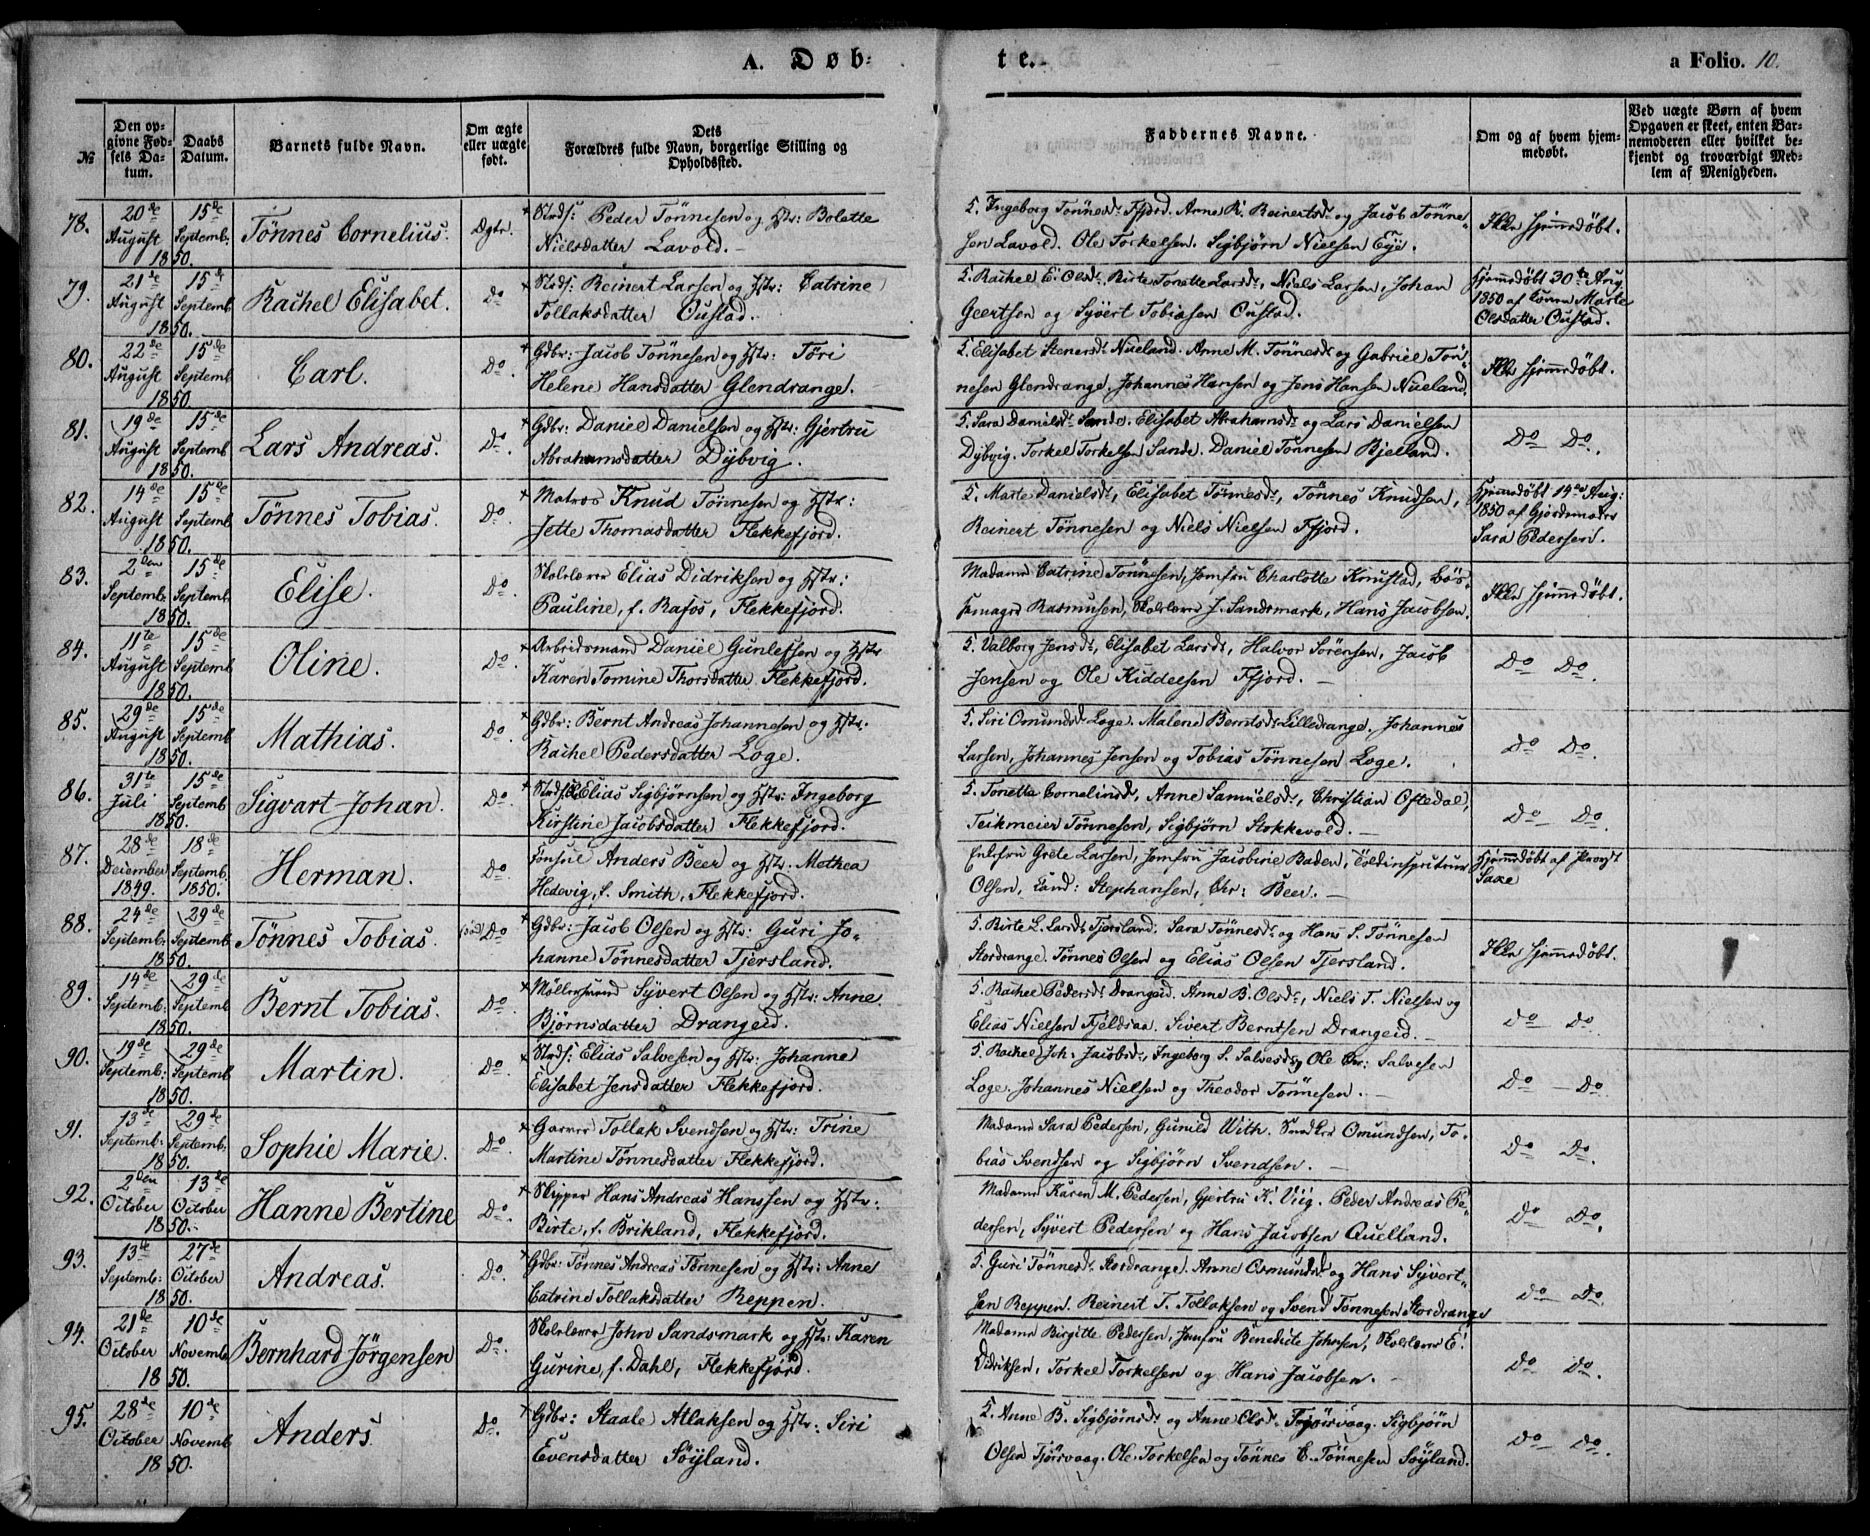 A. Døb-
te.
a Folio. 10.
№
Den op-
givne Fød-
sels Da-
tum.
Daabs
Datum.
Barnets fulde Navn.
Om ægte
eller uægte
født.
Dets
Forældres fulde Navn, borgerlige Stilling og
Opholdssted.
Faddernes Navne.
Om og af hvem hjem-
medøbt.
Ved uægte Børn af hvem
Opgaven er skeet, enten Bar-
nemoderen eller hvilket be-
kjendt og troværdigt Med-
lem af Menigheden.
78.
20de August 1850.
15de Septemb.
Tönnes Cornelius.
Ægte.
Peder Tönnesen og Hstr: Bolette
Nielsdatter Lavold.
5. Ingeborg Tönnesd. Ffjord. Arne R. Reinertsd. og Jacob Tönne-
sen Lavold. Ole Torkelsen. Sigbjörn Nielsen Eye.
Ikke hjemmedöbt.
79.
21de August 1850.
15de Septemb.
Rachel Elisabet.
Do
Reinert Larsen og Hstr: Catrine
Tollaksdatter Oustad.
5. Rachel E. Olsd. Birte Tonette Larsd., Niels Larsen, Johan
Geertsen og Syvert Tobiasen Oustad.
Hjemmedöbt 30te Aug.
1850 af Marte
Olsdatter Oustad.
80.
22de August 1850.
15de Septemb.
Carl.
Do.
Gdbr: Jacob Tönnesen og Hstr: Töri
Helene Hansdatter Glendrange.
5. Elisabet Stenersd. Nueland. Anne M. Tönnesd. og Gabriel Tön-
nesen Glendrange. Johannes Hansen og Jens Hansen Nueland.
Ikke hjemmedöbt.
81.
19de August 1850.
15de Septemb.
Lars Andreas.
Do.
Gdbr: Daniel Danielsen og Hstr: Gjertru
Abrahamsdatter Dybvig.
5. Sara Danielsd. Sande. Elisabet Abrahamsd. og Lars Danielsen
Dybvig. Torkel Torkelsen Sande. Daniel Tönnesen Bjelland.
Do Do.
82.
14de August 1850.
15de Septemb.
Tönnes Tobias.
Do.
Matros Knud Tönnesen og Hstr:
Jette Thomasdatter Flekkefjord.
5. Marte Danielsd., Elisabet Tönnesd., Tönnes Knudsen,
Reinert Tönnesen og Niels Nielsen Ffjord.
Hjemmedöbt 14de Aug:
1850 af Gjordemoder
Sara Pedersen.
83.
2den Septemb. 1850.
15de Septemb.
Elise.
Do.
Skolelærer Elias Didriksen og Hstr:
Pauline, f. Rafos, Flekkefjord.
Madame Catrine Tönnesen, Jomfru Charlotte Knustad, Bös-
semager Rasmusen, Skolelærer J. Sandsmark, Hans Jacobsen.
Ikke hjemmedöbt.
84.
11te August 1850.
15de Septemb
Oline.
Do.
Arbeidsmand Daniel Gunlefsen og Hstr
Karen Tomine Thorsdatter Flekkefjord.
5. Valborg Jensd., Elisabet Larsd., Halvor Sörensen, Jacob
Jensen og Ole Kiddelsen Ffjord.
Do Do.
85.
29de August 1850.
15de Septemb
Mathias.
Do.
Gdbr: Bernt Andreas Johannesen og Hstr.
Rachel Pedersdatter Loge.
5. Siri Omundsd. Loge. Malene Berntsd. Lilledrange. Johannes
Larsen, Johannes Jensen og Tobias Tönnesen Loge.
Do Do.
86.
31te Juli 1850.
15de Septemb
Sigvart Johan.
Do.
Elias Sigbjörnsen og Hstr: Ingeborg
Kirstine Jacobsdatter Flekkefjord.
5. Tonette Corneliusd., Anne Samuelsd., Christian Oftedal,
Teikmeier Tönnesen, Sigbjörn Stokkevold.
Do Do.
87.
28de December 1849.
18de Septemb. 1850.
Herman.
Do.
Consul Anders Beer og Hstr. Mathea
Hedevig, f. Smith, Flekkefjord.
Enkefru Grete Larsen, Jomfru Jacobine Baden, Toldinspecteur
Olsen, Cand: Stephansen, Chr: Beer.
Hjemmedöbt af Provst
Saxe
88.
24de Septemb: 1850.
29de Septemb.
Tönnes Tobias.
Do
Gdbr: Jacob Olsen og Hstr: Guri Jo-
hanne Tönnesdatter Tjersland.
5. Birte L. Larsd. Tjersland. Sara Tönnesd. og Hans S. Tönnesen
Stordrange. Tönnes Olsen og Elias Olsen Tjersland.
Ikke hjemmedöbt.
89.
14de Septemb. 1850.
29de Septemb.
Bernt Tobias.
Do.
Möllersvend Syvert Olsen og Hstr: Anne
Björnsdatter Drangeid.
5. Rachel Pedersd. Drangeid. Anne B. Olsd., Niels T. Nielsen og
Elias Nielsen Fjeldsaa. Sivert Berntsen Drangeid.
Do Do.
90.
19de Septemb: 1850.
29de Septemb
Martin.
Do.
Elias Salvesen og Hstr: Johanne
Elisabet Jensdatter Flekkefjord.
5. Rachel Joh. Jacobsd., Ingeborg S. Salvesd. og Ole Chr: Salvesen
Loge. Johannes Nielsen og Theodor Tönnesen.
Do Do
91.
13de Septemb: 1850.
29de Septemb.
Sophie Marie.
Do.
Garver Tollak Svendsen og Hstr: Trine
Martine Tönnesdatter Flekkefjord.
Madame Sara Pedersen, Gunild With. Snedker Omundsen, To-
bias Svendsen og Sigbjörn Svendsen.
Do Do.
92.
2den October 1850.
13de October
Hanne Bertine
Do.
Skipper Hans Andreas Hanssen og Hstr:
Birte, f. Brikland, Flekkefjord.
Madame Karen M. Pedersen, Gjertru K. Viig. Peder Andreas Pe-
dersen, Syvert Pedersen og Hans Jacobsen Quelland.
Do Do.
93.
13de Septemb: 1850.
27de October
Andreas.
Do.
Gdbr: Tönnes Andreas Tönnesen og Hstr: Anne
Catrine Tollaksdatter Reppen.
5. Guri Tönnesd. Stordrange. Anne Osmundsd. og Hans Syvert-
sen Reppen. Reinert T. Tollaksen og Svend Tönnesen Stordrange
Do Do.
94.
21de October 1850.
10de Novemb.
Bernhard Jörgensen
Do.
Skolelærer John Sandsmark og Hstr: Karen
Gurine, f. Dahl, Flekkefjord.
Madame Birgitte Pedersen, Jomfru Benedicte Johnsen, Skolelærer E.
Didriksen, Torkel Torkelsen og Hans Jacobsen.
Do Do.
95.
28de October 1850.
10de Novemb
Anders
Do.
Gdbr: Staale Atlaksen og Hstr: Siri
Evensdatter Söyland.
5. Anne B. Sigbjörnsd. og Anne Olsd. Tjörsvaag. Sigbjörn
Olsen Tjörsvaag. Ole Torkelsen og Tönnes E. Tönnesen Söyland.
Do Do.